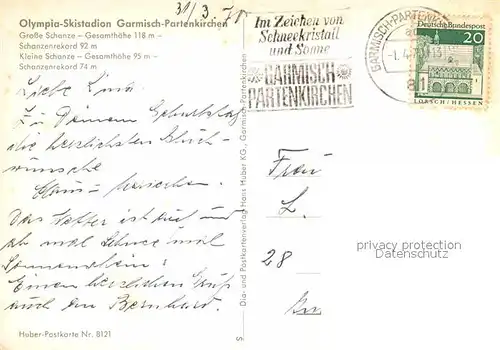 Olympia-Skistadion Garmisch-Partenkirchen
Große Schanze – Gesamthöhe 118 m –
Schanzenrekord 92 m
Kleine Schanze – Gesamthöhe 95 m –
Schanzenrekord 74 m
31/3.71
Liebe Lina.
Zu Deinem Geburtstag
die herzlichsten Glück-
wünsche
Das Wetter ist auch und
ab mal Schnee mal
Sonnenschein:
Einen herzlichen Gruß
auch den Bernhard.
Huber-Postkarte Nr. 8121
Dia- und Postkartenverlag Hans Huber KG., Garmisch-Partenkirchen
S
Im Zeichen von
Schneekristall
und Sonne
GARMISCH
PARTENKIRCHEN
GARMISCH-PARTEN
Deutsche Bundespost
20
LORSCH/HESSEN
Frau
L.
28
privacy protection
Datenschutz